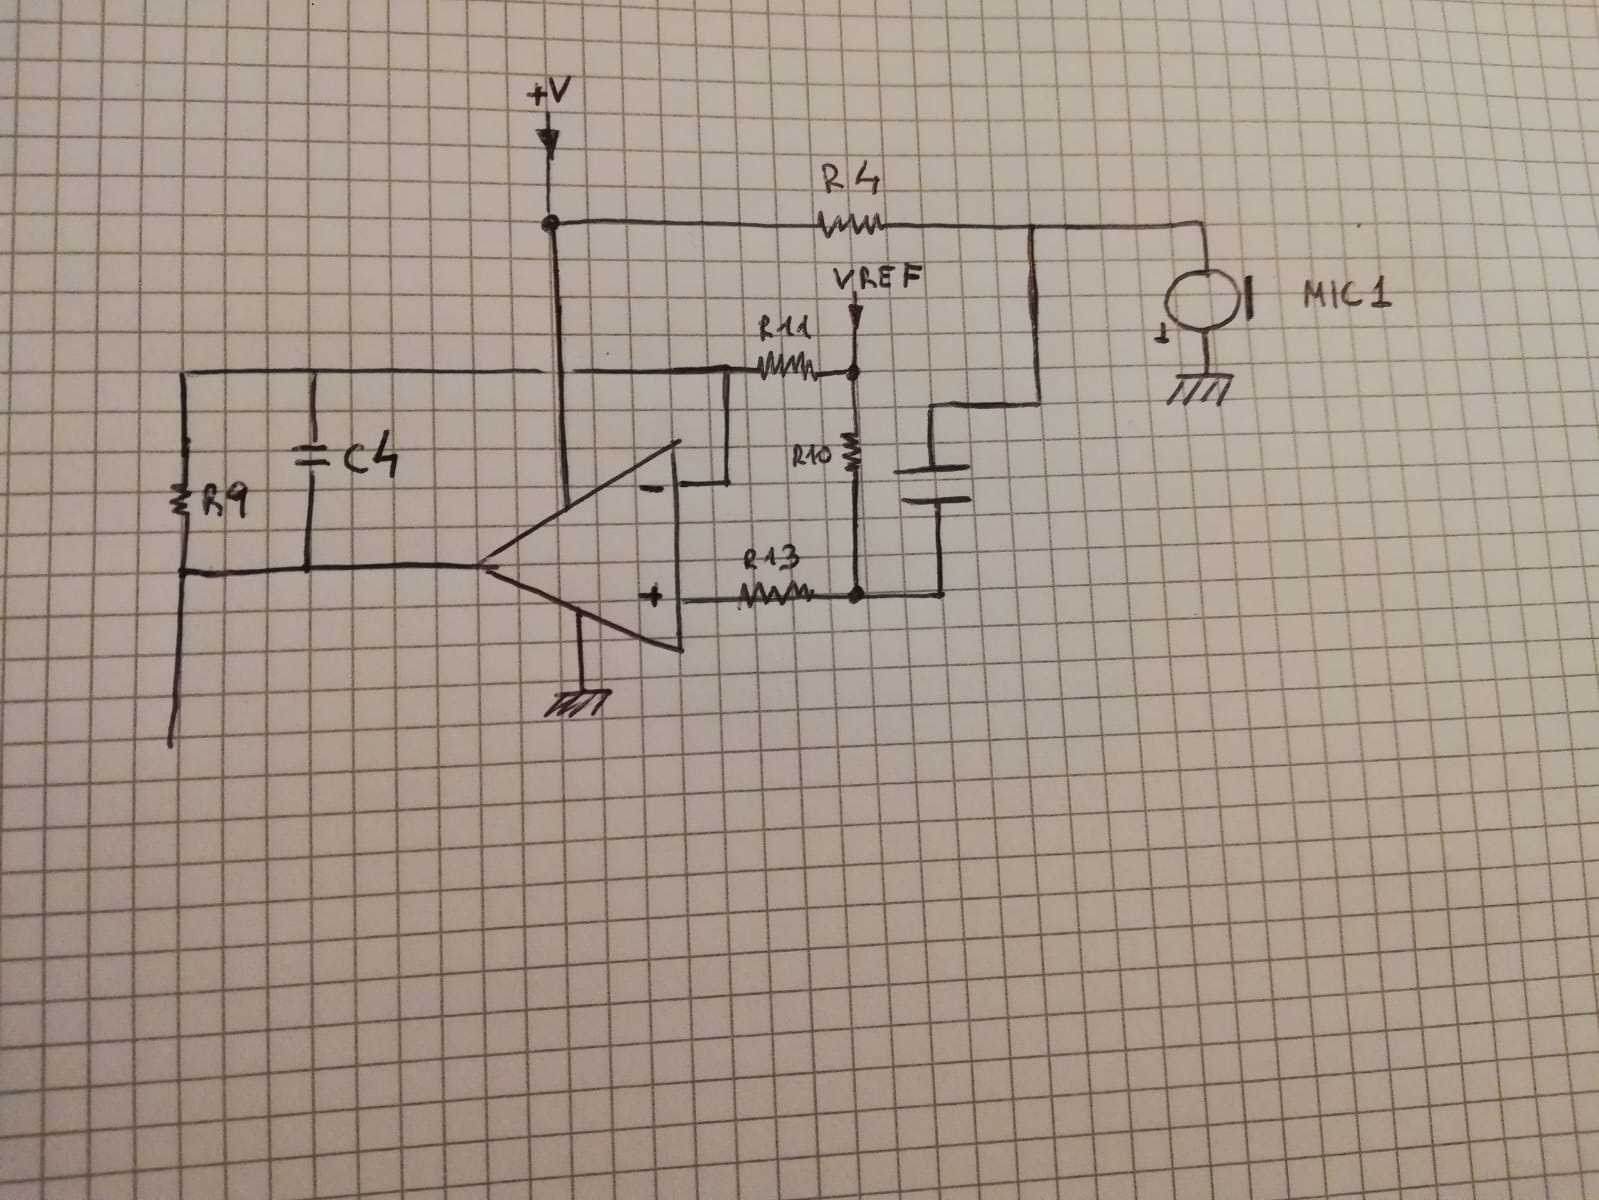 +V
R4
VREF
MIC1
R11
1
R10
C4
R9
-
R13
+